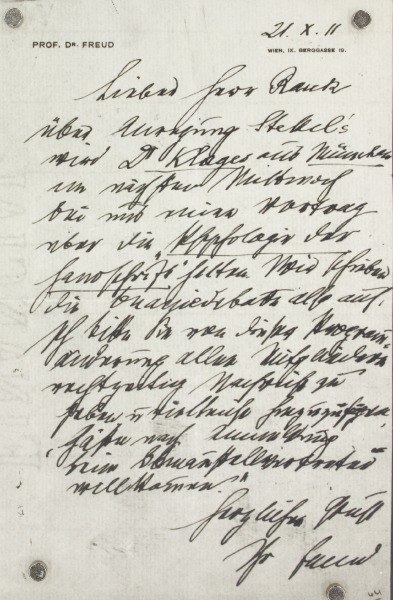 PROF. DR. FREUD
21. X. 11
WIEN, IX. BERGGASSE 19.
Lieber Herr Rank
über Anregung Stekel's
wird Dr Klages aus München
am nächsten Mittwoch
bei uns einen Vortrag
über die „Psychologie der
Handschrift“ halten. Wir schieben
die Onaniedebatte also auf.
Ich bitte Sie von dieser Program-
änderung allen Mitgliedern
rechtzeitig Nachricht zu
geben u vielleicht hinzuzufügen
„Gäste nach Anmeldung
beim Obmannstellvertreter
willkommen.“
Herzlichen Gruß
Ihr Freud